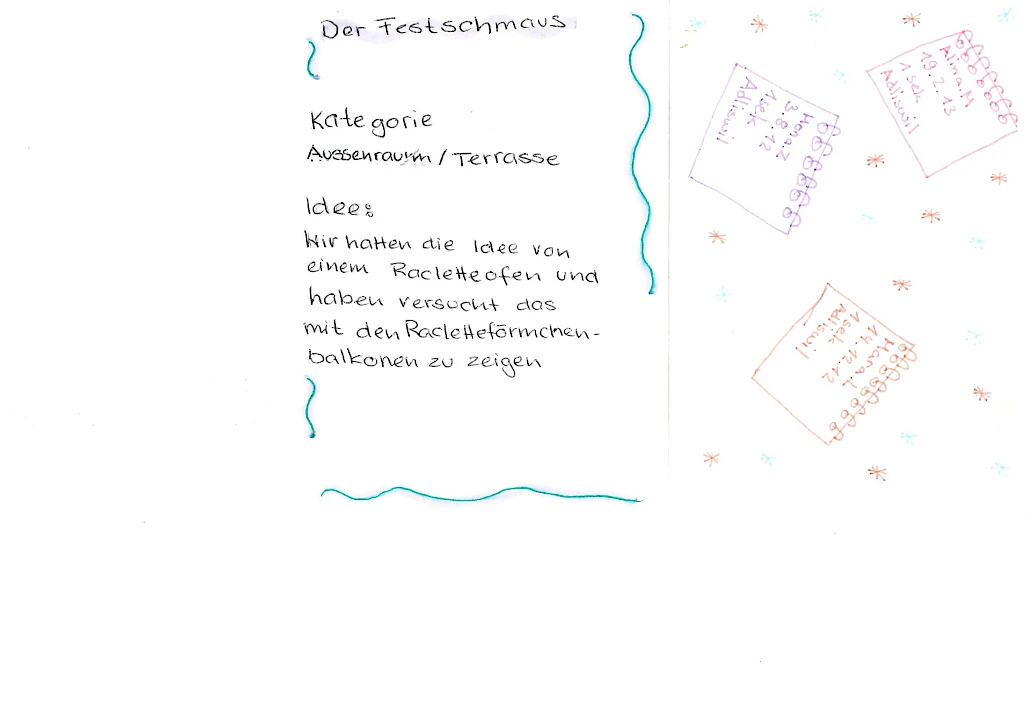 Der Festschmaus
Kategorie
Aussenraum / Terrasse
Idee:
Wir hatten die Idee von
einem Racletteofen und
haben versucht das
mit den Racletteförmchen-
balkonen zu zeigen
Hana.Z
3.8.12
1sek
Adliswil
Alina.M
19.2.13
1 sek
Adliswil
Hana.L
14.12.12
1sek
Adliswil